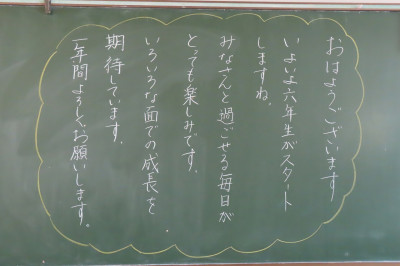 おはようございます
いよいよ六年生がスタート
しますね。
みなさんと過ごせる毎日が
とっても楽しみです。
いろいろな面での成長を
期待しています。
一年間よろしくお願いします。